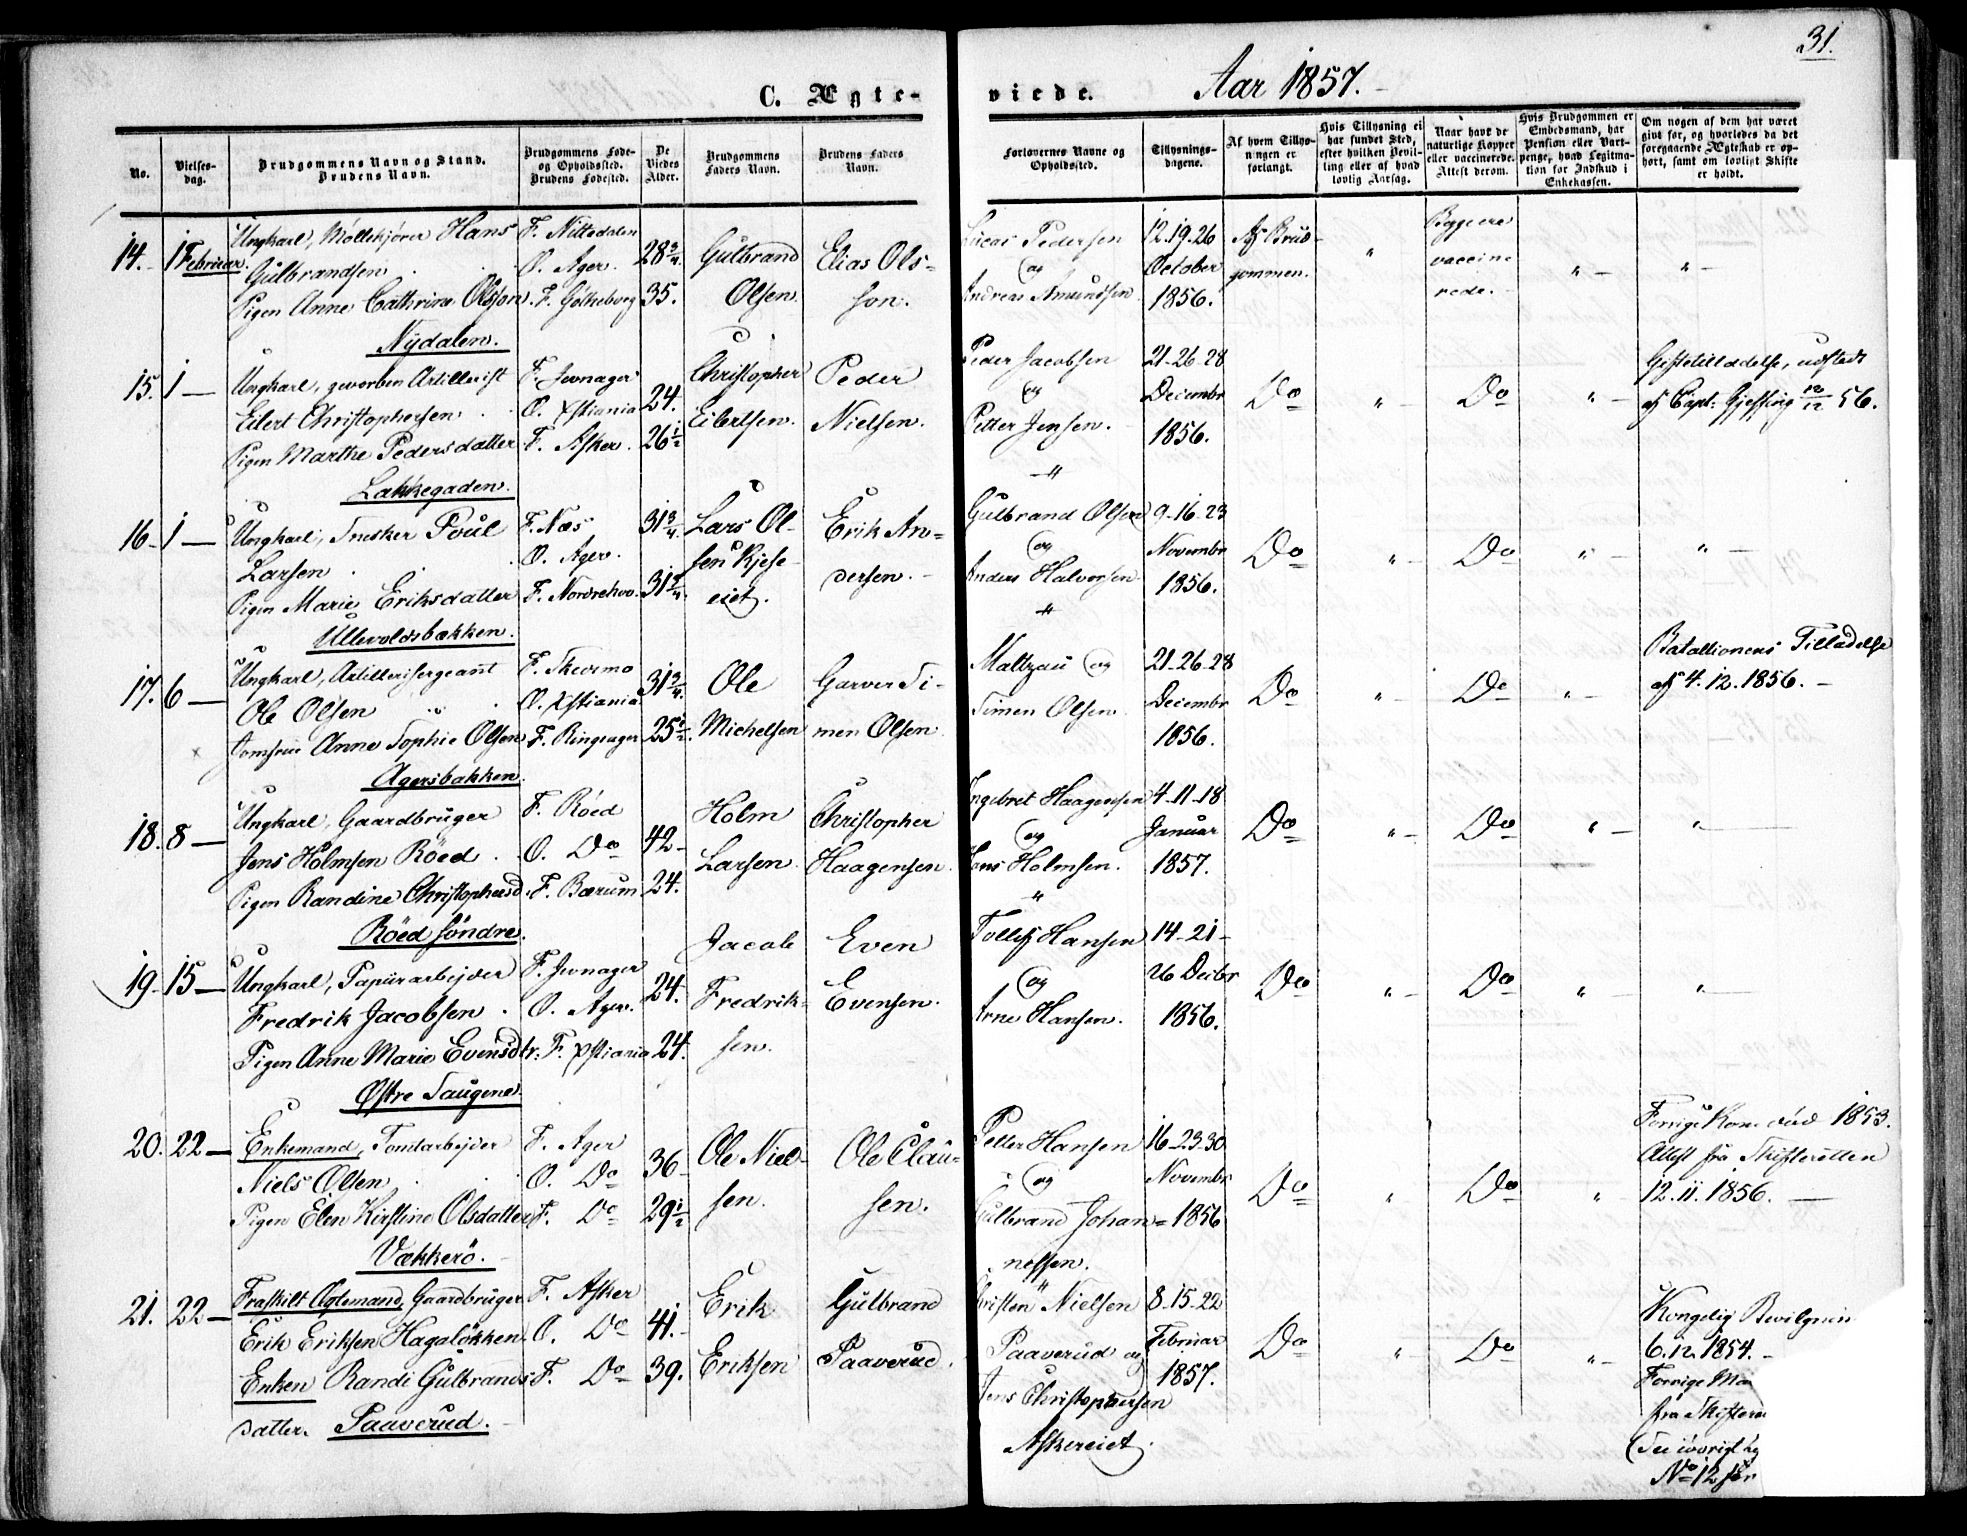 31.
C. Ægte-
viede.
Aar 1857.
No.
Vielses-
dag.
Brudgommens Navn og Stand.
Brudens Navn.
Brudgommens Føde-
og Opholdssted.
Brudens Fødested.
De
Viedes
Alder.
Brudgommens
Faders Navn.
Brudens Faders
Navn.
Forlovernes Navne og
Opholdssted.
Tillysnings-
dagene.
Af hvem Tillys-
ningen er
forlangt.
Hvis Tillysning ei
har fundet Sted,
efter hvilken Bevil-
ling eller af hvad
lovlig Aarsag.
Naar havt de
naturlige Kopper
eller vaccinerede.
Attest derom.
Hvis Brudgommen er
Embedsmand, har
Pension eller Vart-
penge, hvad Legitima-
tion for Indskud i
Enkekassen.
Om nogen af dem har været
gift før, og hvorledes da det
foregaaende Ægteskab er op-
hørt, samt om lovligt Skifte
er holdt.
14. 1 Februar.
Ungkarl, Møllekjører Hans
Gulbrandsen
Pigen Anne Cathrine Olsson.
Nydalen.
F. Nittedalen
O. Ager.
F. Gøtheborg
28 3/4
35.
Gulbrand
Olsen
Elias Ols=
son.
Lucas Pedersen
og
Andreas Amundsen
12. 19. 26
October
1856.
Af Brud-
gommen.
"
Begge ere
vaccine
rede.
" -
" -
15. 1 —
Ungkarl, gevorben Artillerist
Eilert Christophersen
Pigen Marthe Pedersdatter
Lakkegaden.
F. Jevnager
O. Xstiania
F. Asker.
24.
26 1/2
Christopher
Eilertsen.
Peder
Nielsen.
Peder Jacobsen
og
Petter Jensen.
21-26-28
Decembr
1856.
Do
" -
Do
" -
Giftetilladelse, udstedt
af Capt: Gjessing 12/12 56.
16. 1 —
Ungkarl, Snekker Poul
Larsen
Pigen Marie Eriksdatter
Ullevoldsbakken.
F. Næs
O. Ager.
F. Norderhov.
31 3/4
31 3/4.
Lars Ol-
sen Kjese-
eiet.
Erik An=
dersen.
Gulbrand Olsen
og
Anders Halvorsen
9-16-23
Novembr
1856.
Do
" -
Do
" -
" -
17. 6 —
Ungkarl, Artillerisergeant
Ole Olsen
Jomfrue Anne Sophie Olsen
Agersbakken.
F. Skedsmo
O. Xstiania
F. Ringsager
31 3/4.
25 1/2.
Ole
Michelsen
Garver Si-
men Olsen
Maltzau og
Simen Olsen.
21-26-28
Decembr
1856.
Do
" -
Do
" -
Batallionens Tilladelse
af 4. 12. 1856. —
18. 8 —
Ungkarl, Gaardbruger
Jens Holmsen Röed
Pigen Randine Christophersd.
Röed söndre.
F. Röed
O. Do
F. Bærum
42-
24.
Holm
Larsen
Christopher
Haagensen.
Ingebret Haagensen
og
Hans Holmsen.
4-11-18
Januar
1857.
Do
" -
Do
" -
"
19. 15 —
Ungkarl, Papiirarbejder
Fredrik Jacobsen
Pigen Anne Marie Evensdtr.
Østre Saugene.
F. Jevnager
O. Ager.
F. Xstiania
24.
24.
Jacob
Fredrik-
sen.
Even
Evensen.
Tollef Hansen
og
Arne Hansen.
14-21-
26 Decbr
1856.
Do
" -
Do
" -
"
20. 22 —
Enkemand, Tomtarbejder
Niels Olsen
Pigen Elen Kirstine Olsdatter
Vækkerö.
F. Ager
O. Do
F. Do
36
29 1/2
Ole Niel-
sen.
Ole Clau=
sen.
Petter Hansen
og
Gulbrand Johan=
nessen.
16-23-30
Novembr
1856
Do
"
Do
"
Forrige Kone död 1853.
Attest fra Skifteretten
12. 11. 1856. —
21. 22 —
Fraskilt Ægtemand, Gaardbruger
Erik Eriksen Hagalökken
Enken Randi Gulbrands
datter. Paaverud.
F. Asker
O. Do
F. Do
41.
39.
Erik
Eriksen
Gulbrand
Paaverud.
Christen Nielsen
Paaverud og
Jens Christophersen
Askereiet.
8-15-22
Februar
1857.
Do
" -
Do
" -
Kongelig Bevilgnin
6. 12. 1854.
Forrige Ma
fra Skiftere
No 12 for